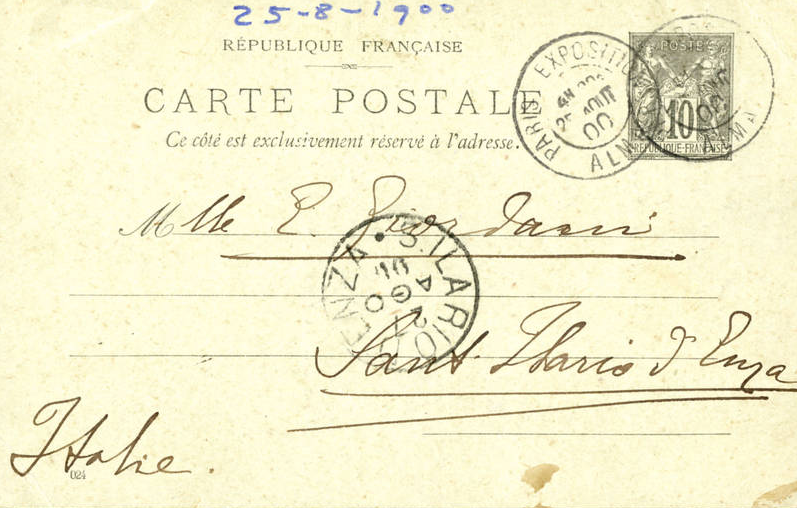 25-8-1900
RÉPUBLIQUE FRANÇAISE
CARTE POSTALE
Ce côté est exclusivement réservé à l'adresse.
PARIS EXPOSITION ALMA
AOUT
00
POSTES
10
RÉPUBLIQUE FRANÇAISE
Mlle E. Giordani
S. ILARIO D'ENZA
AGO
00
Sant Ilario d'Enza
Italie.
024